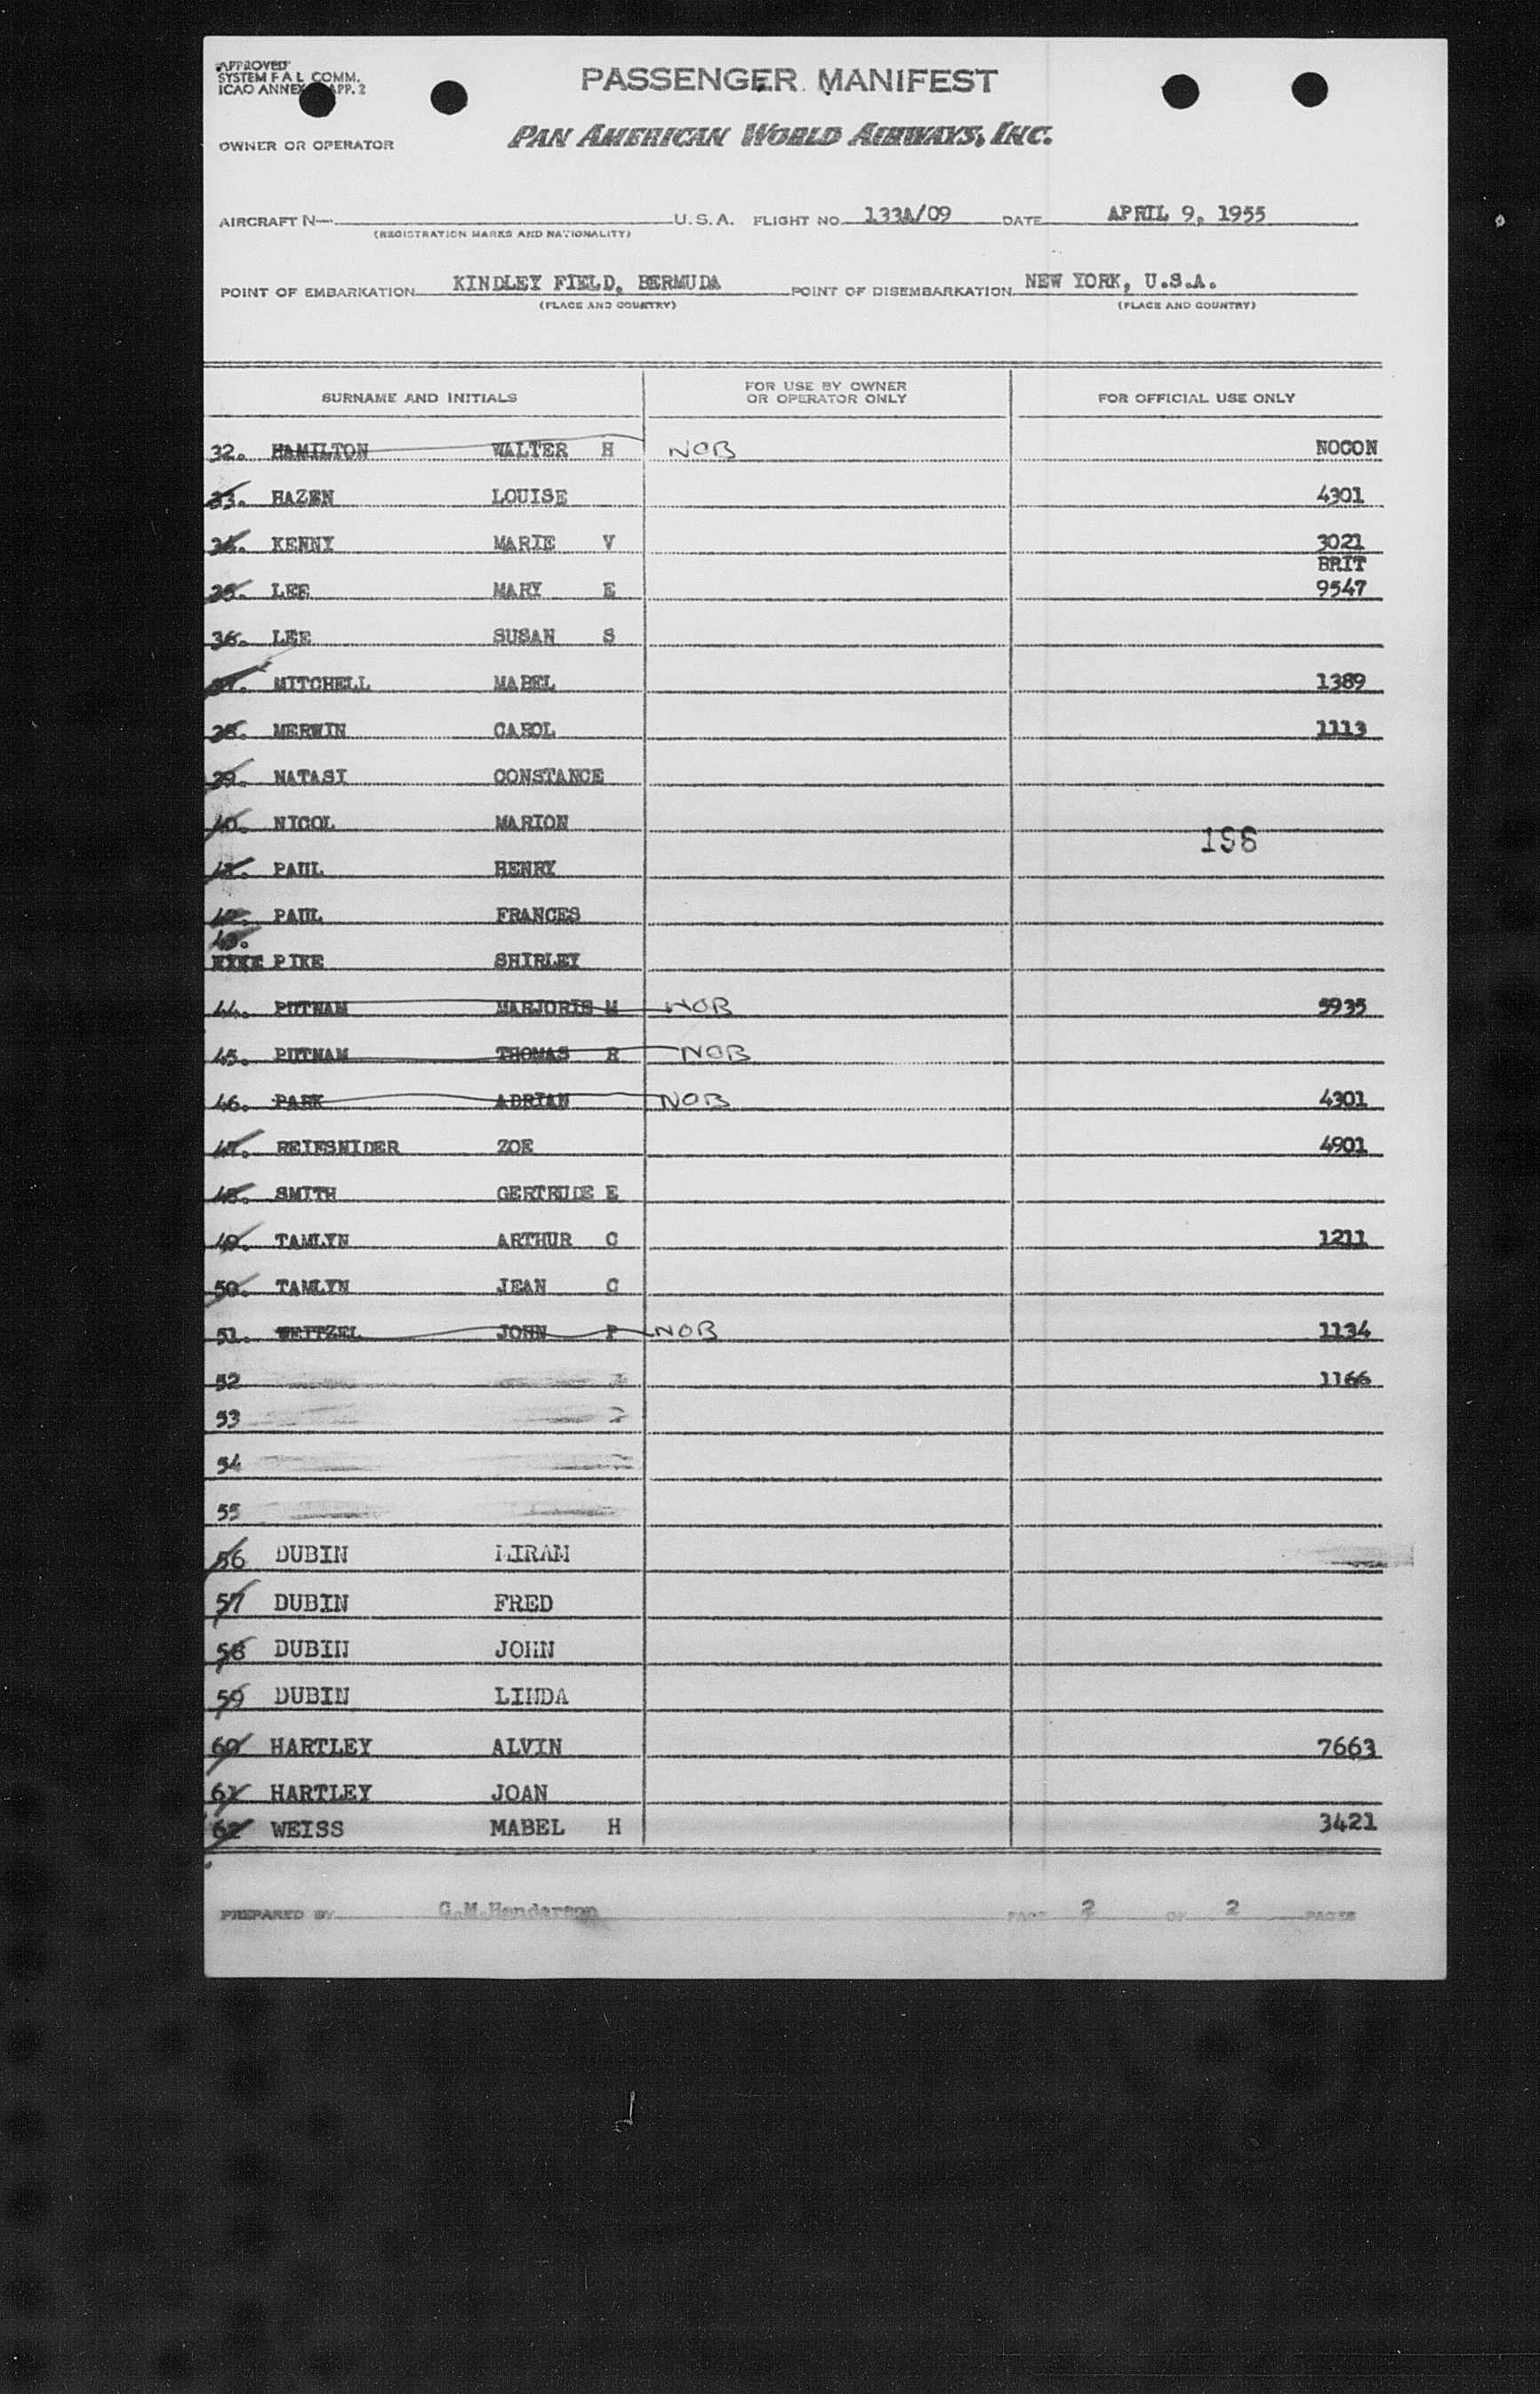 APPROVED
SYSTEM F A L COMM.
ICAO ANNEX APP. 2
PASSENGER MANIFEST
OWNER OR OPERATOR PAN AMERICAN WORLD AIRWAYS, INC.
AIRCRAFT N— U. S. A. FLIGHT NO. 133A/09 DATE APRIL 9, 1955
(REGISTRATION MARKS AND NATIONALITY)
POINT OF EMBARKATION KINDLEY FIELD, BERMUDA POINT OF DISEMBARKATION NEW YORK, U.S.A.
(PLACE AND COUNTRY) (PLACE AND COUNTRY)
SURNAME AND INITIALS FOR USE BY OWNER OR OPERATOR ONLY FOR OFFICIAL USE ONLY
32. HAMILTON WALTER H NOB NOCON
33. HAZEN LOUISE 4301
34. KENNY MARIE V 3021
BRIT
35. LEE MARY E 9547
36. LEE SUSAN S
37. MITCHELL MABEL 1389
38. MERWIN CAROL 1113
39. NATASI CONSTANCE
40. NICOL MARION
196
41. PAUL HENRY
42. PAUL FRANCES
43.
PIKE SHIRLEY
44. PUTNAM MARJORIE M NOB 5935
45. PUTNAM THOMAS R NOB
46. PARK ADRIAN NOB 4301
47. REIFSNIDER ZOE 4901
48. SMITH GERTRUDE E
49. TAMLYN ARTHUR C 1211
50. TAMLYN JEAN C
51. WEITZEL JOHN P NOB 1134
52 1166
53
54
55
56 DUBIN MIRAM
57 DUBIN FRED
58 DUBIN JOHN
59 DUBIN LINDA
60 HARTLEY ALVIN 7663
61 HARTLEY JOAN
62 WEISS MABEL H 3421
PREPARED BY G.M.Henderson PAGE 2 OF 2 PAGES